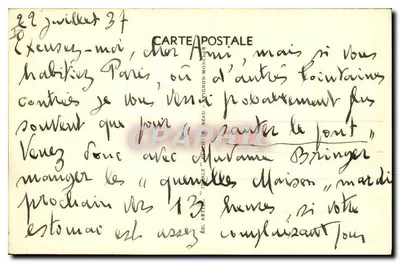 22 juillet 37
CARTE POSTALE
Excusez-moi, Mon Ami, mais, si vous
habitiez Paris, où d'autres lointaines
contrées je vous verrai probablement plus
souvent que pour "sauter le pont"
Venez donc avec Madame Bringer
manger les "quenelles Maison" mardi
prochain vers 13 heures, si votre
estomac est assez complaisant pour